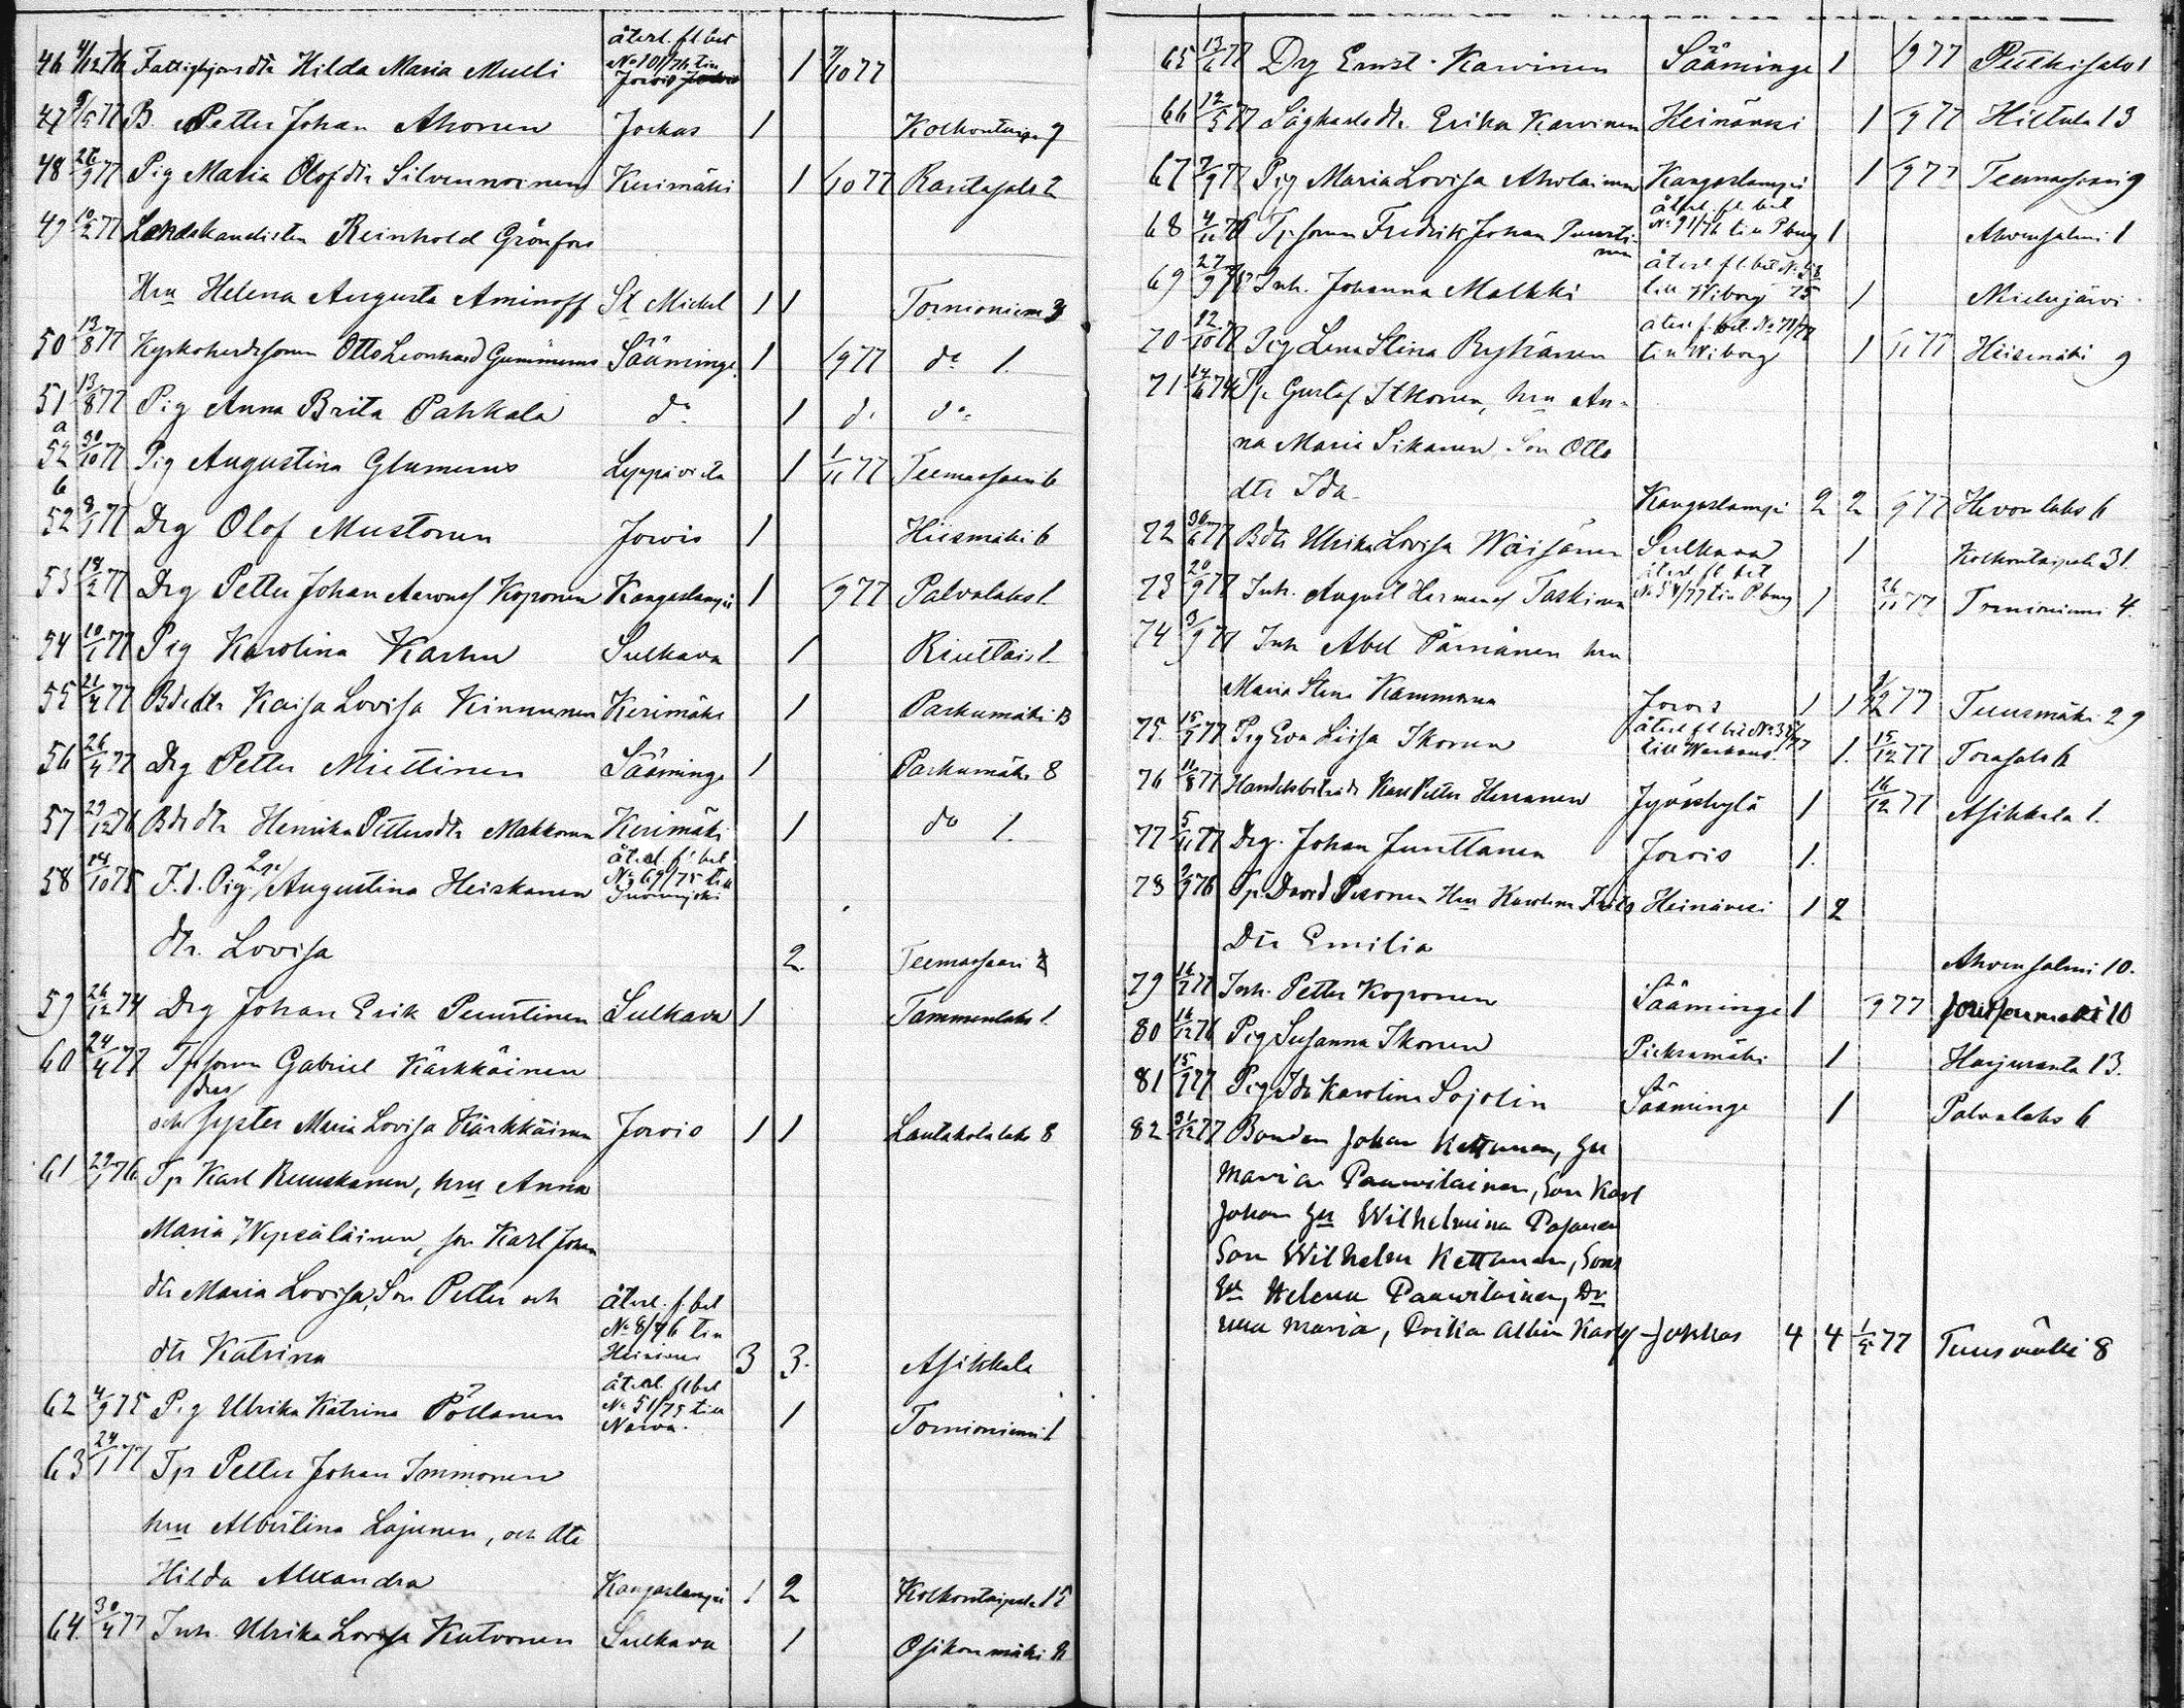 46 4/12 76 Fattighjonsdtr Hilda Maria Mulli återl. fl. bet No 101/76 till Jorois 1 1/10 77
47 9/5 77 B. Petter Johan Ahonen Jockas 1 Kolkontaipa 9
48 26/9 77 Pig Maria Olofdtr Silvennoinen Kerimäki 1 1/10 77 Rantasalo 2
49 10/2 77 Landskanslisten Reinhold Grönfors
Hru Helena Augusta Aminoff St Michel 1 1 Tornioniemi 3
50 13/8 77 Kyrkoherdesonen Otto Leonhard Gummerus Sääminge 1 1/9 77 do 1.
51 13/8 77 Pig Anna Brita Pahkala do 1 do do
a 52 30/10 77 Pig Augustina Glumerus Leppävirta 1 1/11 77 Teemassaari 6
b 52 8/1 77 Drg Olof Mustonen Jorois 1 Hiismäki 6
53 18/2 77 Drg Petter Johan Koponen Kangaslampi 1 1/9 77 Palvalaks 1.
54 10/1 77 Pig Karolina Karhu Sulkava 1 1.
55 21/4 77 Bdedtr Kaisa Lovisa Kinnunen Kerimäki 1 Parkumäki 13
56 26/4 77 Drg Petter Miettinen Sääminge 1 Parkumäki 8
57 29/12 76 Bdedtr Henrika Pettersdtr Makkonen Kerimäki 1 do 1.
58 14/10 75 F. d. Pig Augustina Heiskanen återl. fl. bet No 69/75 till
dtr. Lovisa 2. Teemassaari 2
59 26/12 74 Drg Johan Erik Puustinen Sulkava 1 Tammenlaks 1.
60 24/4 77 Tpsonen Gabriel Kärkkäinen
och dess syster Maria Lovisa Kärkkäinen Jorois 1 1 Lautakotalaks 8
61 29/9 76 Tp Karl Ruuskanen, hru Anna
Maria Wepsäläinen, son Karl Johan
dtr Maria Lovisa, Son Petter och
dtr Katrina återl. f. bet No 8/76 till Heinävesi 3 3. Asikkala
62 4/9 75 Pig Ulrika Katrina Pöllänen återl. fl bet No 51/75 till Narva. 1 Tornioniemi 1.
63 24/1 77 Tp Petter Johan Immonen
hru Albertina Lajunen, och dtr
Hilda Alexandra Kangaslampi 1 2 Kolkontaipale 15
64. 30/4 77 Inh. Ulrika Lovisa Kutvonen Sulkava 1 Osikonmäki
65 13/6 77 Drg Ernst Karvinen Sääminge 1 1/9 77 Putkisalo 1
66 12/5 77 Erika Karvinen Heinävesi 1 1/9 77 Hiltula 13
67 7/9 77 Pig Maria Lovisa Aholainen Kangaslampi 1 1/9 77 Teemassaari 9
68 4/11 76 Tp. sonen Fredrik Johan Puustinen återl. fl. bet No 91/76 till P.burg 1 Ahvensalmi 1
69 27/9 Inh. Johanna Malkki återl. fl. bet No 58/75 till Wiborg 1
70 22/10 77 Pig Lena Stina Ryhänen återl. f. bet. No 71/77 till Wiborg 1 1/11 77 Hiismäki 9
71 14/6 74 Tp. Gustaf Itkonen, hru An-
na Maria Sikanen. Son Otto
dtr Ida. Kangaslampi 2 2 1/9 77 Hevonlaks 6
72 30/6 77 Bdtr Ulrika Lovisa Wäisänen Sulkava 1 Kolkontaipale 31.
73 20/9 77 Inh. August Hermansf Taskinen återl. fl. bet No 54/77 till P.burg 1 26/11 77 Tornioniemi 4.
74 3/9 77 Inh Abel Pärnänen hru
Maria Stina Kammonen Jorois 1 1 1/12 77 Tuusmäki 29
75. 15/9 77 Pig Eva Liisa Ikonen återl fl bet till Warkaus. 1. 15/12 77 Torasalo 6
76 11/8 77 Handelsbetj. Karl Petter Herranen Jyväskylä 1 16/12 77 Asikkala 1.
77 5/11 77 Drg. Johan Junttanen Jorois 1.
78 2/9 76 Tp. David Pesonen Hru Karolina Heinävesi 1 2
Dtr Emilia Ahvensalmi 10.
79 16/7 77 Inh. Petter Koponen Sääminge 1 1/9 77 10
80 14/12 76 Pig Susanna Ikonen Pieksamäki 1 Harjuranta 13.
81 15/9 77 Pig Ida Karolina Sojolin Sääminge 1 Palvalaks 6
82 31/12 77 Bonden Johan Kettunen, Hu
Maria Pauvilainen, Son Karl
Johan Hu Wilhelmina Pasanen
Son Wilhelm Kettunen, Sons
Hu Helena Pauvilainen, Dr
Maria, Poika Albin Karlsf Jokkas 4 4 77 Tuusmäki 8